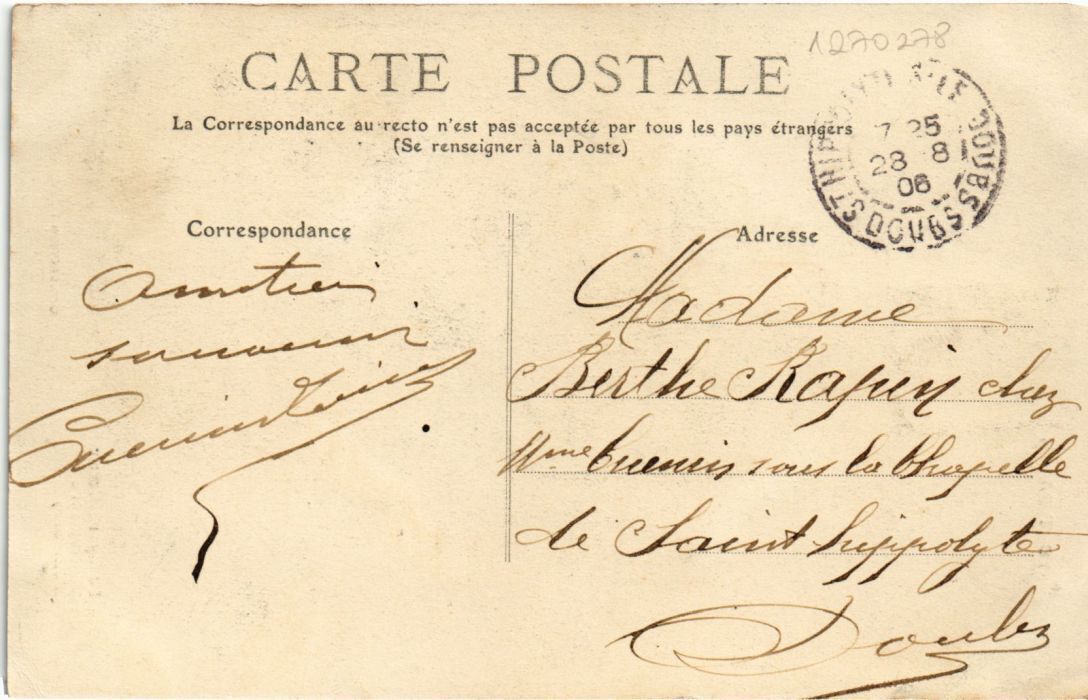 1270278
CARTE POSTALE
La Correspondance au recto n'est pas acceptée par tous les pays étrangers
(Se renseigner à la Poste)
ST HIPPOLYTE S LE DOUBS
7 25
28 8
06
DOUBS
Correspondance
Amitiés
souvenir
Adresse
Madame
Berthe Rapin chez
Mme Guenin sous la Chapelle
de Saint hippolyte
Doubs